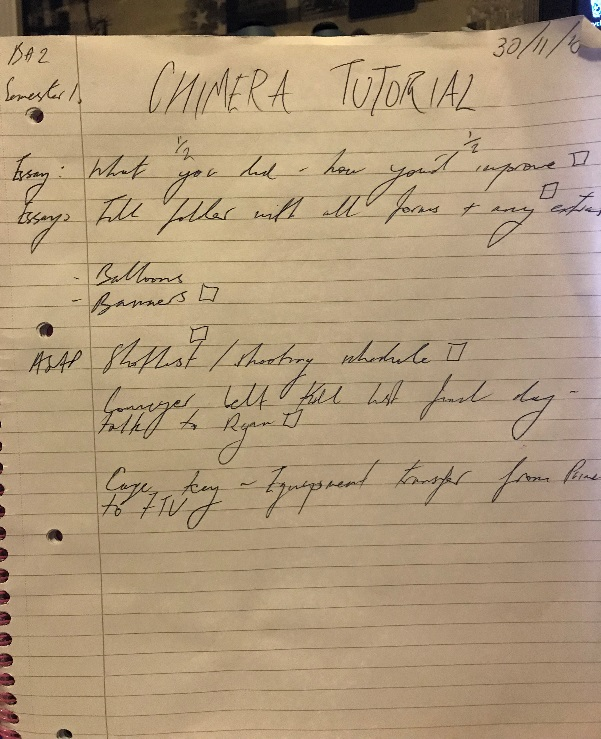 BA2
30/11/
Semester 1.
CHIMERA TUTORIAL
1/2 1/2
Essay: What you did - how you'd improve □
Essay: Fill folder with all forms + any extras □
- Balloons
- Banners □
ASAP Shotlist □ / shooting schedule □
Conveyer belt till last final day -
talk to Ryan □
Cage key - Equipment transfer from
to FTV